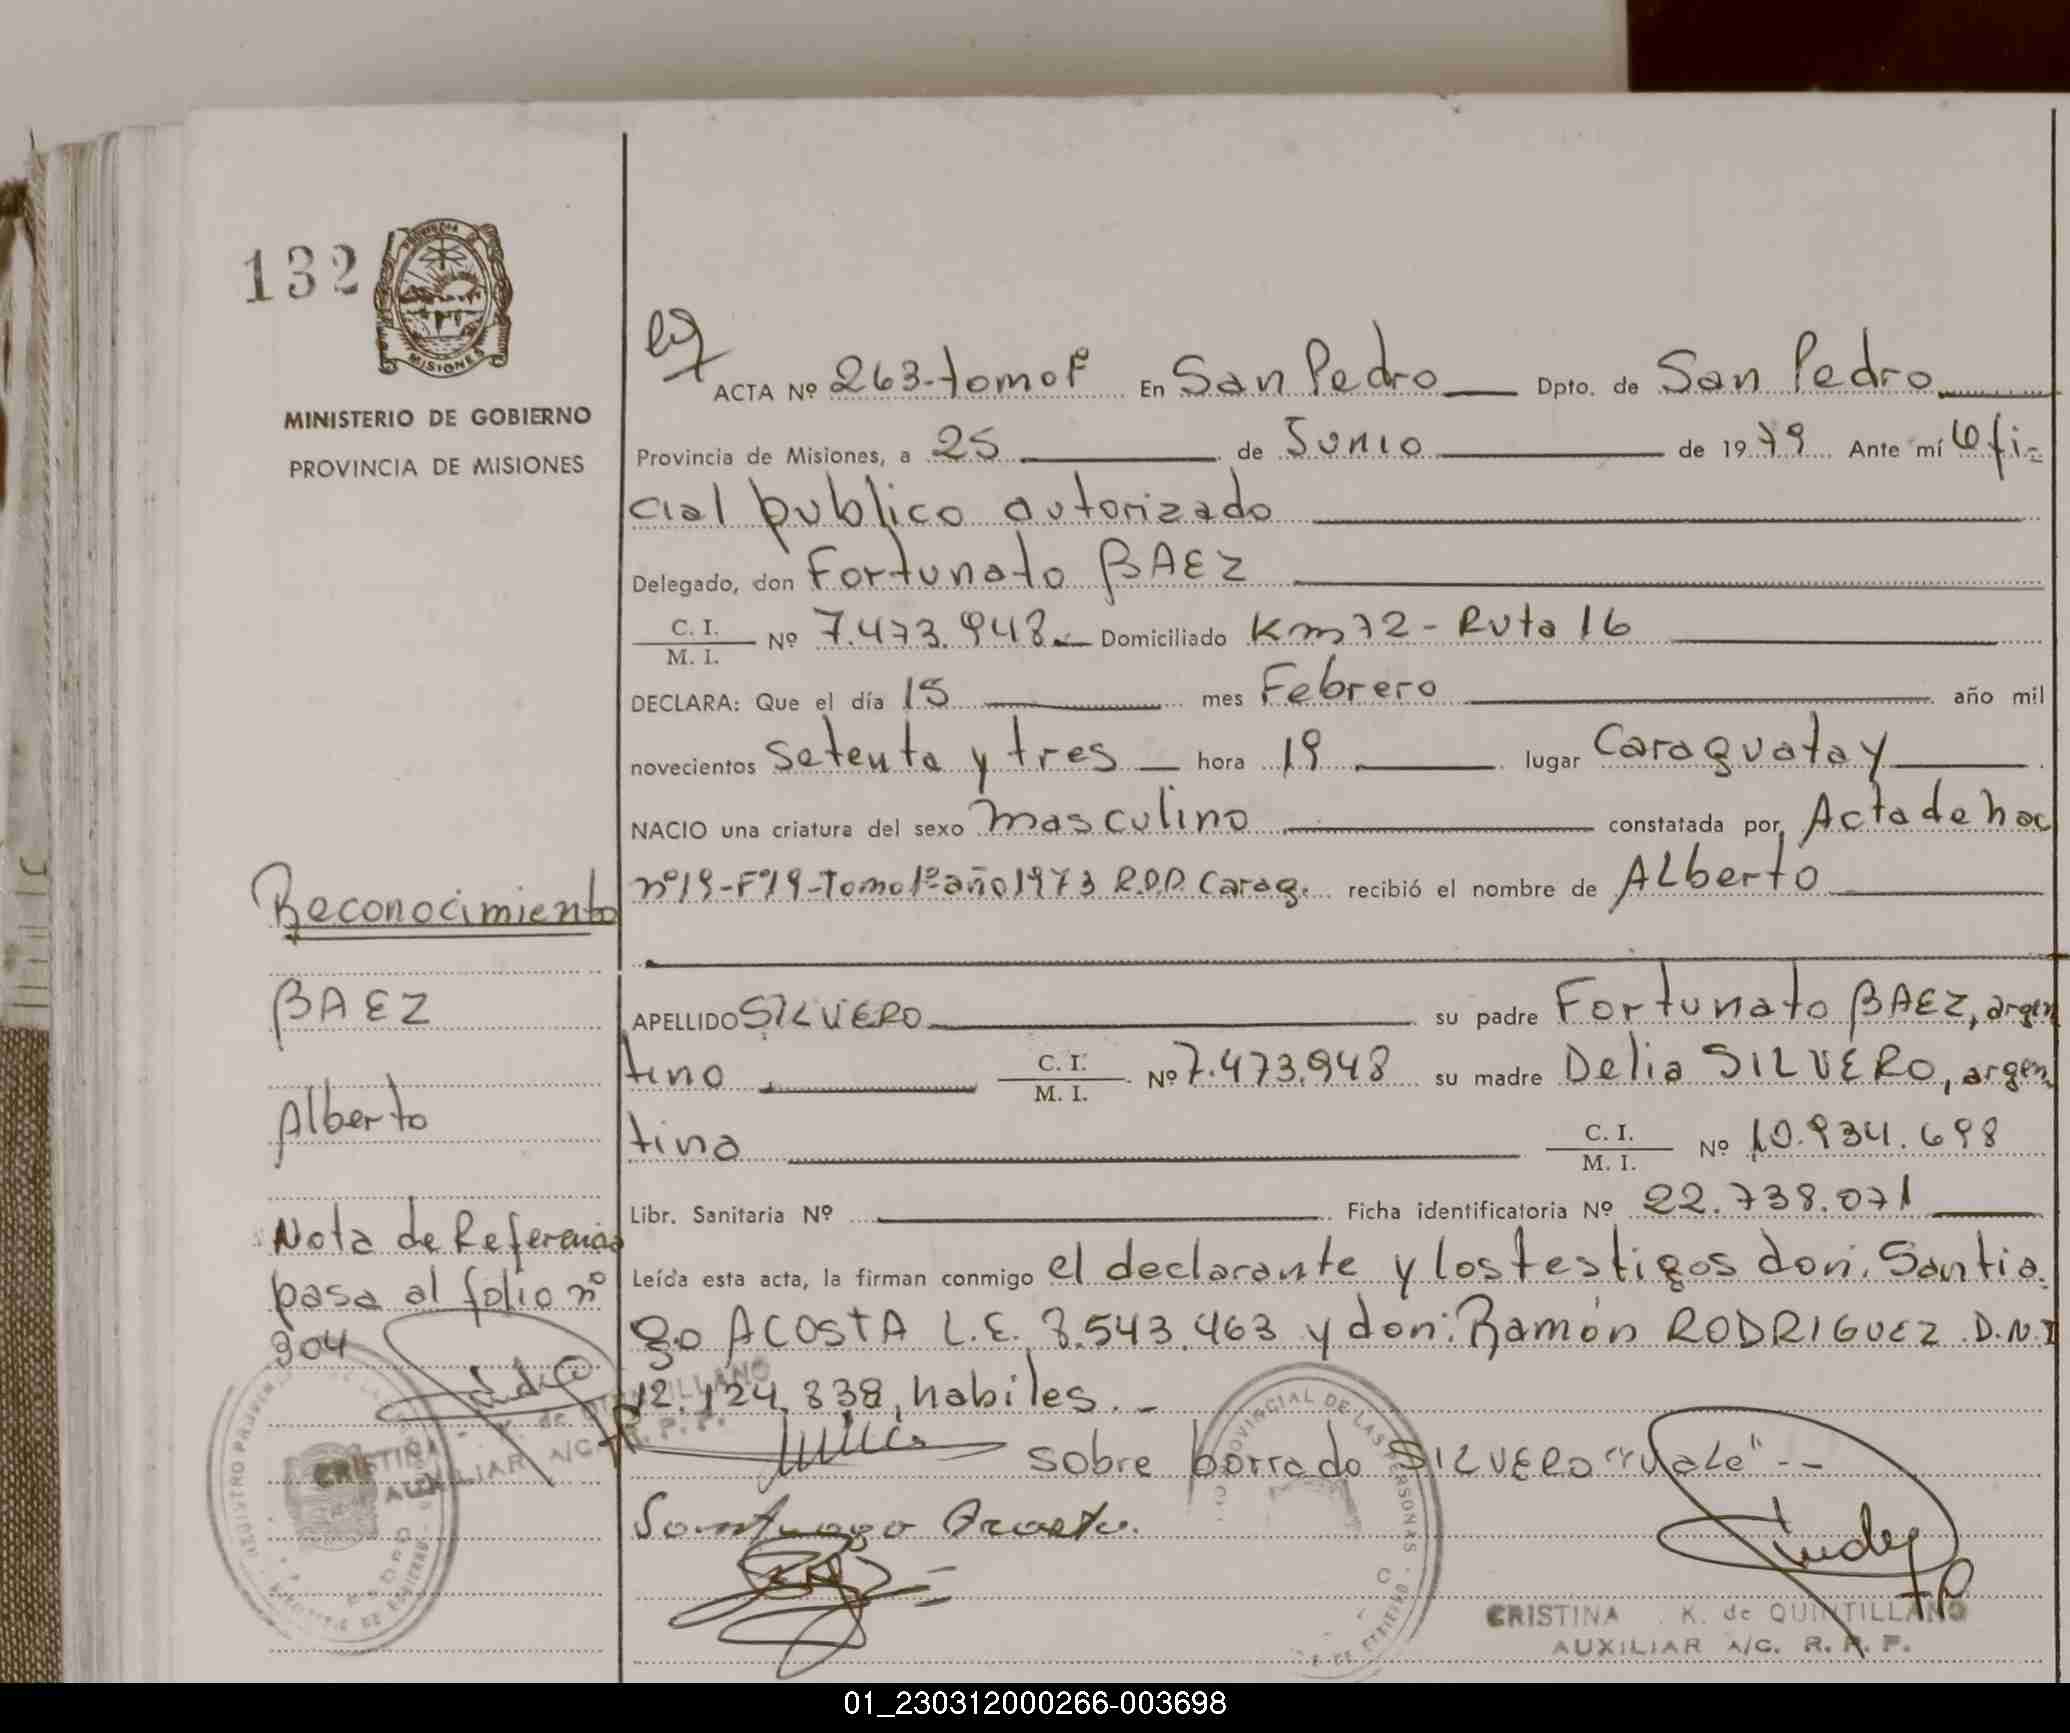 132
MISIONES
MINISTERIO DE GOBIERNO
PROVINCIA DE MISIONES
ACTA Nº 263-tomo Iº En San Pedro Dpto. de San Pedro
Provincia de Misiones, a 25 de Junio de 1979 Ante mí Ofi-
cial publico autorizado
Delegado, don Fortunato BAEZ
C. I.
M. I. Nº 7.473.948.- Domiciliado Km 72 - Ruta 16
DECLARA: Que el día 15 mes Febrero año mil
novecientos setenta y tres hora 19 lugar Caraguatay
NACIO una criatura del sexo masculino constatada por Acta de nac
nº 19-Fº 19-Tomo 1º-año 1973 R.P.P. Carag. recibió el nombre de ALberto
Reconocimiento
BAEZ
Alberto
Nota de Referencia
pasa al folio nº
304
APELLIDO SILVERO su padre Fortunato BAEZ, argen
tino C. I.
M. I. Nº 7.473.948 su madre Delia SILVERO, argen
tina C. I.
M. I. Nº 10.934.698
Libr. Sanitaria Nº Ficha identificatoria Nº 22.738.071
Leída esta acta, la firman conmigo el declarante y los testigos don: Santia
go ACOSTA L.E. 8.543.463 y don: Ramón RODRIGUEZ D.N.I
12.124.838, habiles.-
sobre borrado SILVERO "vale" --
Santiago Acosta.
CRISTINA K. de QUINTILLANO
AUXILIAR A/C. R. P. P.
CRISTINA K. de QUINTILLANO
AUXILIAR A/C. R. P. P.
01_230312000266-003698